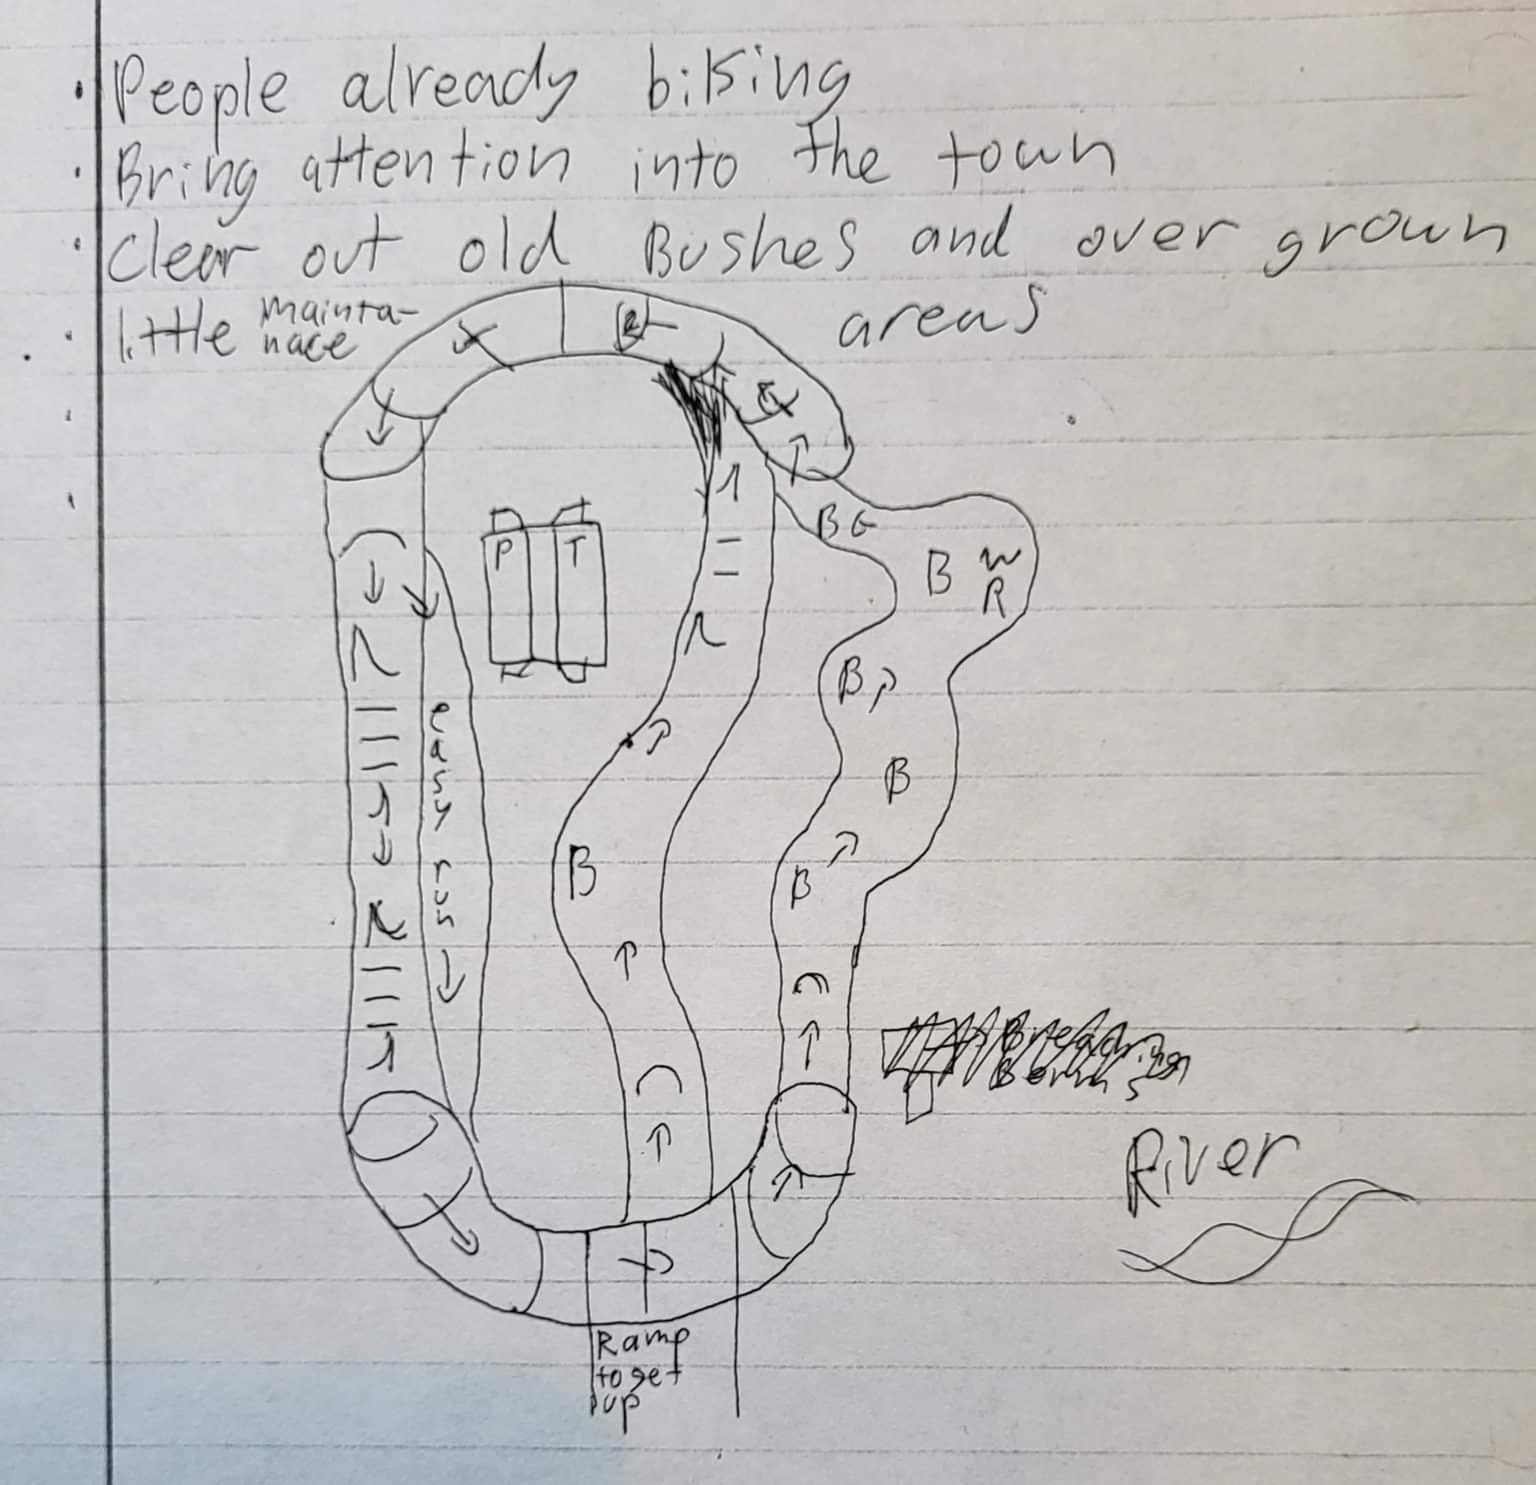 • People already biking
• Bring attention into the town
• Clear out old Bushes and over grown
areas
• little mainta-
nace
B
B W
R
P T
B
easy run
B
B
B
River
Ramp
to get
up